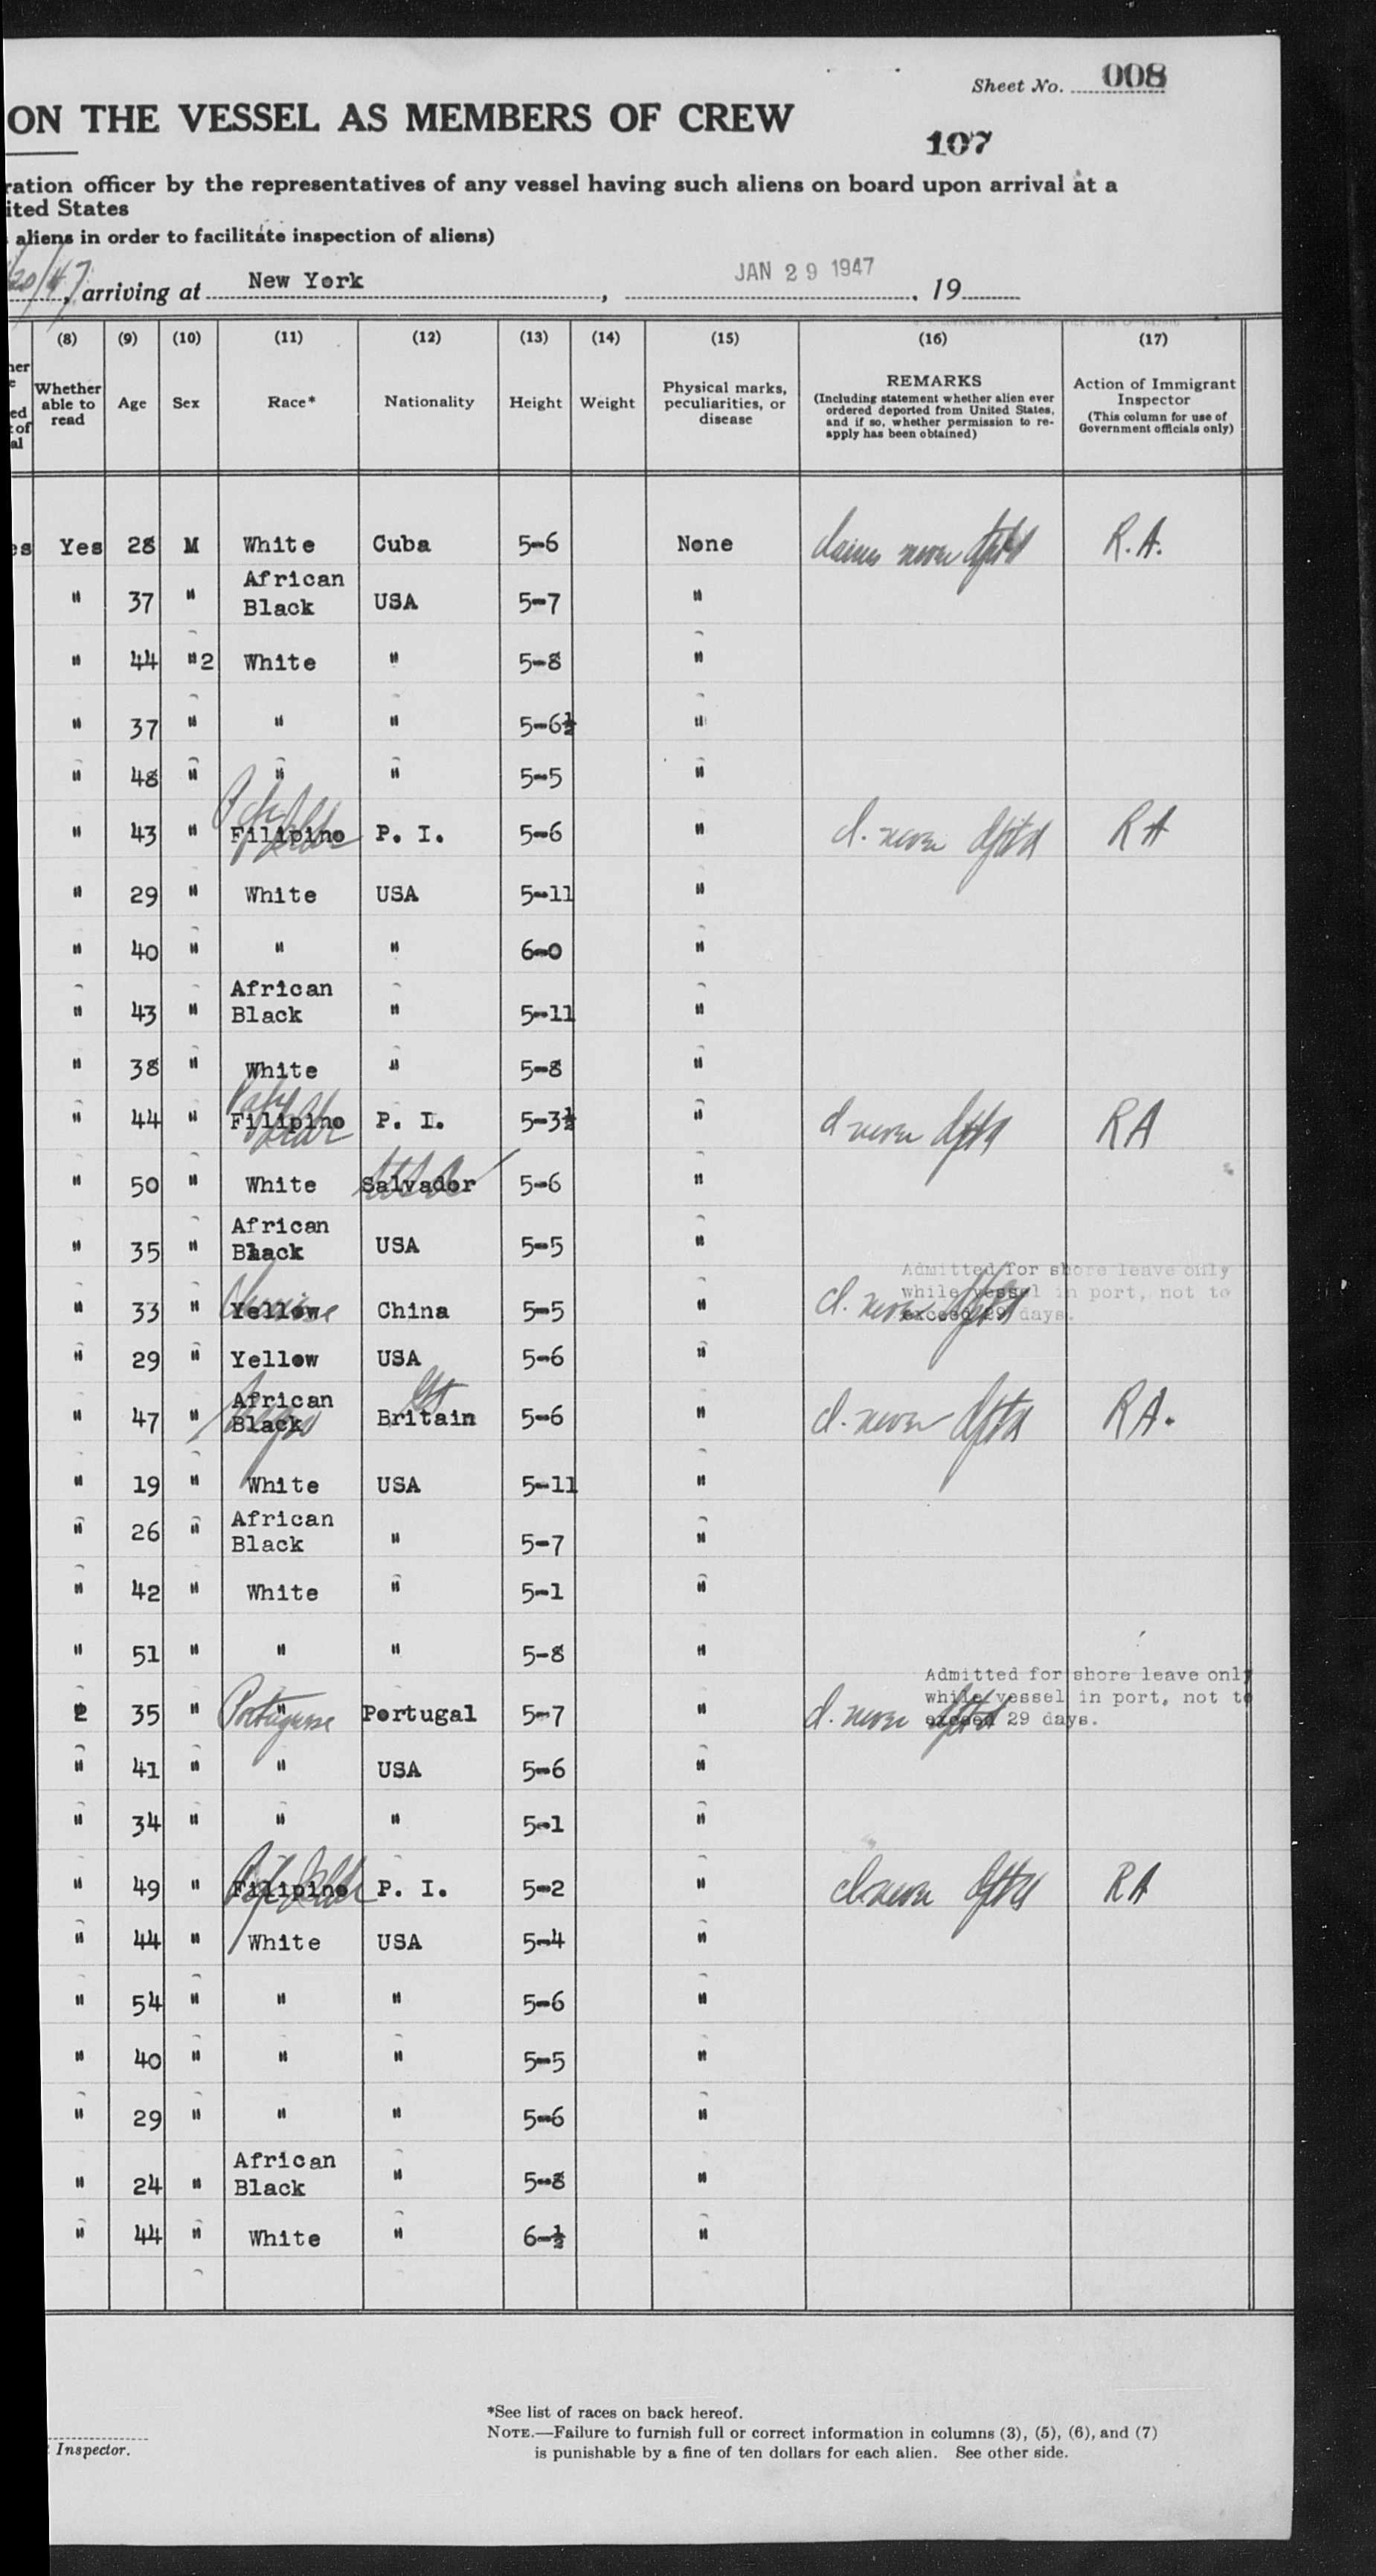 Sheet No. 008
ON THE VESSEL AS MEMBERS OF CREW
107
ration officer by the representatives of any vessel having such aliens on board upon arrival at a
ited States
aliens in order to facilitate inspection of aliens)
20/47, arriving at New York, JAN 29 1947, 19
(8) (9) (10) (11) (12) (13) (14) (15) (16) (17)
Whether able to read Age Sex Race* Nationality Height Weight Physical marks, peculiarities, or disease REMARKS (Including statement whether alien ever ordered deported from United States, and if so, whether permission to re-apply has been obtained) Action of Immigrant Inspector (This column for use of Government officials only)
es Yes 28 M White Cuba 5-6 None claims never dptd R.A.
" 37 " African Black USA 5-7 "
" 44 "2 White " 5-8 "
" 37 " " " 5-6½ "
" 48 " " " 5-5 "
" 43 " Filipino P. I. 5-6 " cl. never dptd RA
" 29 " White USA 5-11 "
" 40 " " " 6-0 "
" 43 " African Black " 5-11 "
" 38 " White " 5-8 "
" 44 " Filipino P. I. 5-3½ " cl never dptd RA
" 50 " White Salvador 5-6 "
" 35 " African Black USA 5-5 "
" 33 " Yellow Chinese China 5-5 " cl. never dptd Admitted for shore leave only while vessel in port, not to exceed 29 days.
" 29 " Yellow USA 5-6 "
" 47 " African Black Negro Gt Britain 5-6 " cl. never dptd RA.
" 19 " White USA 5-11 "
" 26 " African Black " 5-7 "
" 42 " White " 5-1 "
" 51 " " " 5-8 "
2 35 " " Portuguese Portugal 5-7 " cl. never dptd Admitted for shore leave only while vessel in port, not to exceed 29 days.
" 41 " " USA 5-6 "
" 34 " " " 5-1 "
" 49 " Filipino P. I. 5-2 " cl never dptd RA
" 44 " White USA 5-4 "
" 54 " " " 5-6 "
" 40 " " " 5-5 "
" 29 " " " 5-6 "
" 24 " African Black " 5-8 "
" 44 " White " 6-½ "
*See list of races on back hereof.
NOTE.—Failure to furnish full or correct information in columns (3), (5), (6), and (7)
is punishable by a fine of ten dollars for each alien. See other side.
Inspector.